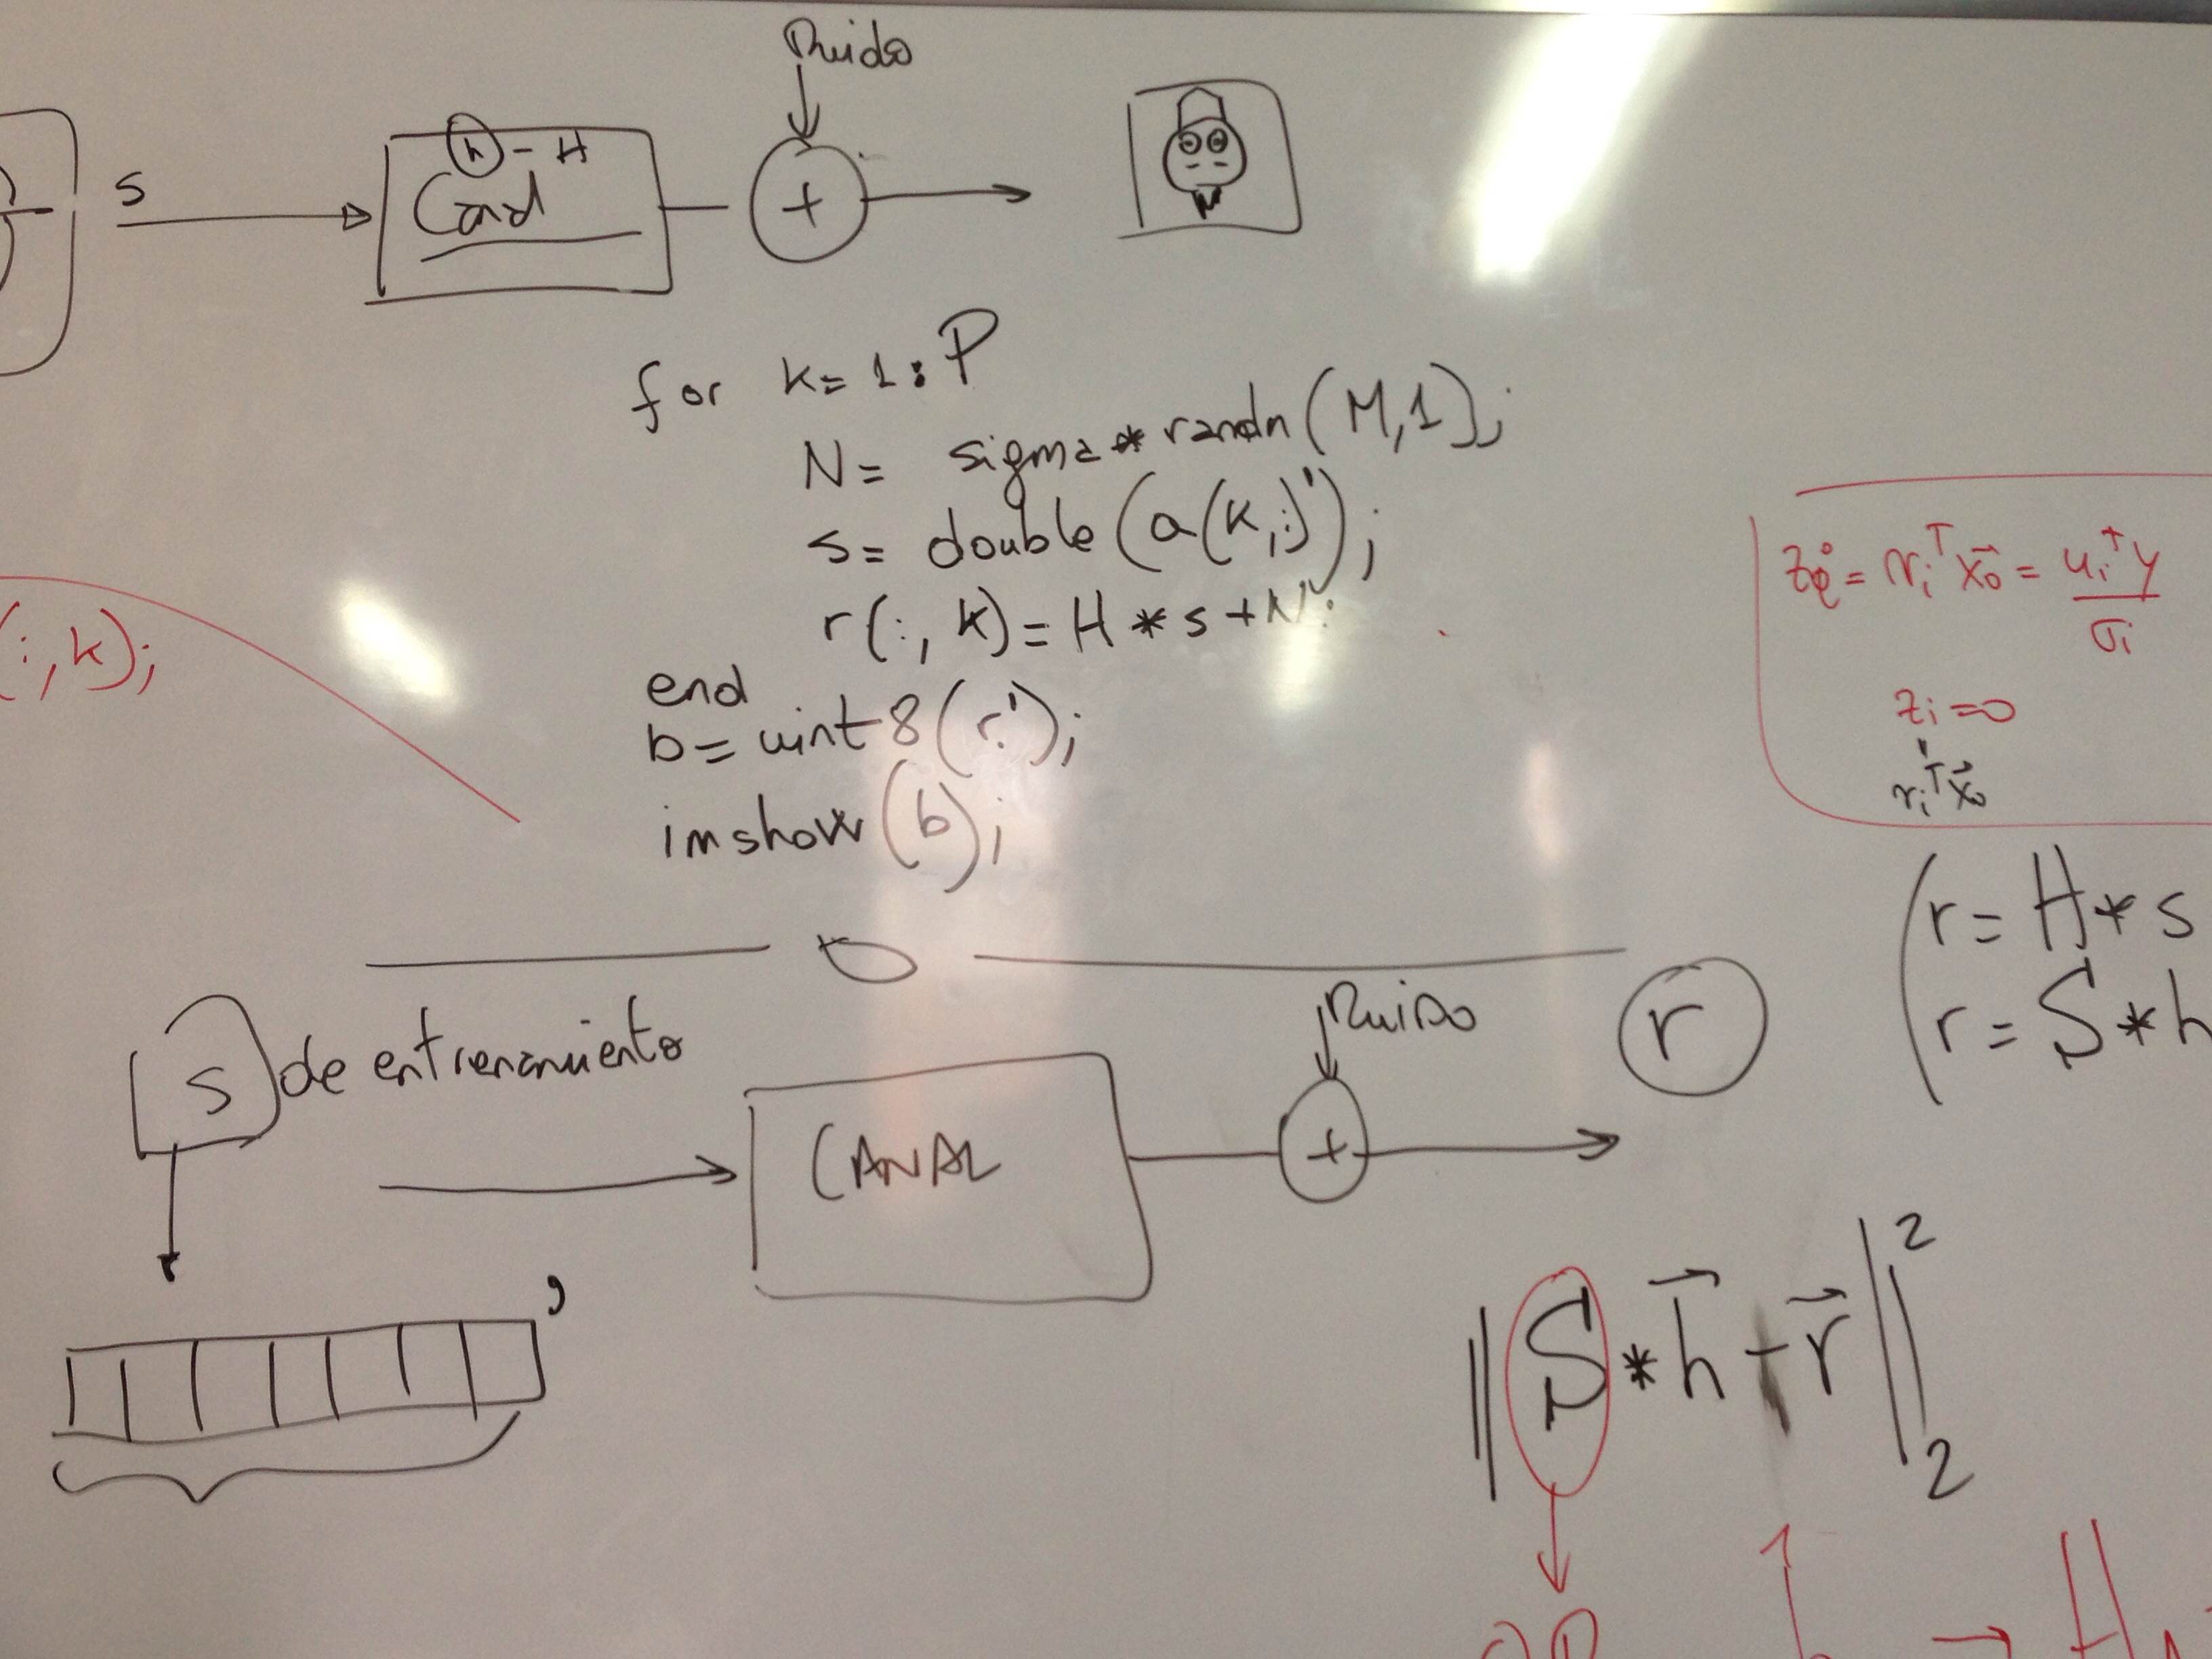 Ruido
s
h - H
Canal
+
for k=1:P
N= sigma*randn(M,1);
s= double(a(k,:)');
r(:,k)=H*s+N;
end
b=uint8(r.');
imshow(b);
(:,k);
zᵢ= vᵢᵀx₀= uᵢᵀy
σᵢ
zᵢ=0
vᵢᵀx₀
r= H*s
r= S*h
s de entrenamiento
Ruido
r
CANAL
+
'
||S*h-r||²₂
QR
h → H